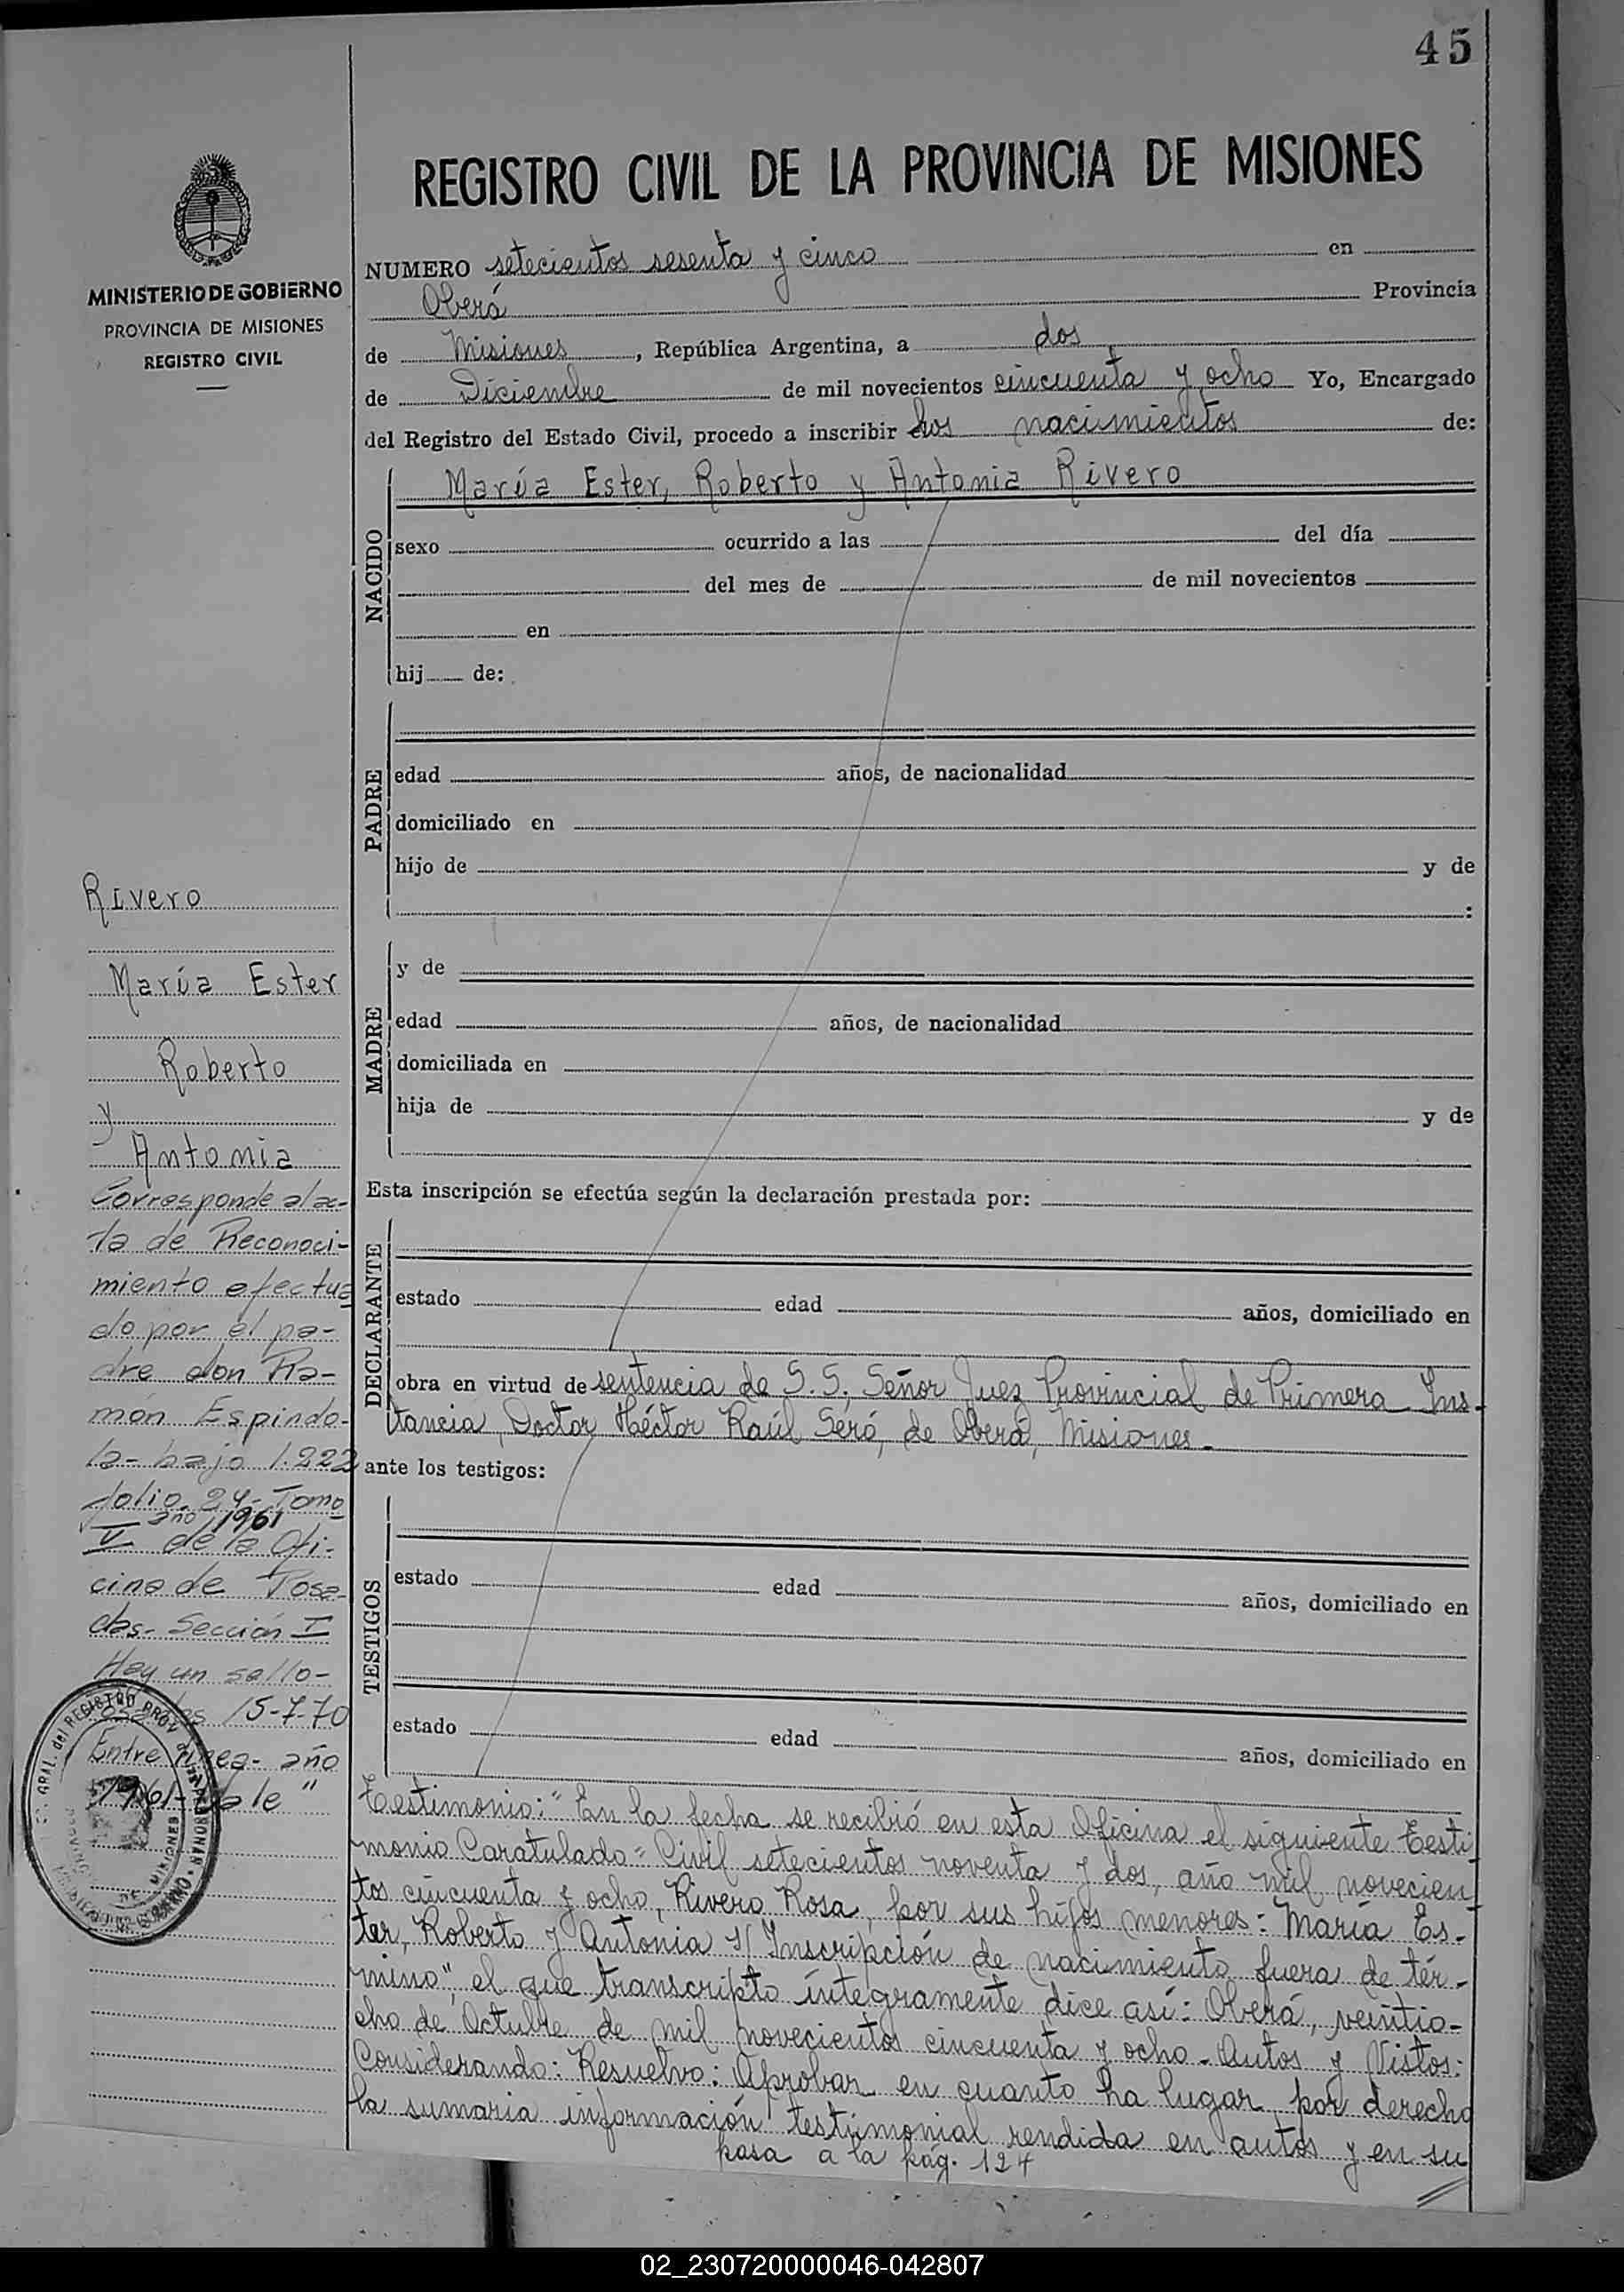 45
REGISTRO CIVIL DE LA PROVINCIA DE MISIONES
MINISTERIO DE GOBIERNO
PROVINCIA DE MISIONES
REGISTRO CIVIL
NUMERO setecientos sesenta y cinco en
Oberá Provincia
de Misiones, República Argentina, a dos
de Diciembre de mil novecientos cincuenta y ocho Yo, Encargado
del Registro del Estado Civil, procedo a inscribir los nacimientos de:
NACIDO
María Ester, Roberto y Antonia Rivero
sexo ocurrido a las del día
del mes de de mil novecientos
en
hij de:
PADRE
edad años, de nacionalidad
domiciliado en
hijo de y de
:
MADRE
y de
edad años, de nacionalidad
domiciliada en
hija de y de
Esta inscripción se efectúa según la declaración prestada por:
DECLARANTE
estado edad años, domiciliado en
obra en virtud de sentencia de S.S. Señor Juez Provincial de Primera Ins-
tancia, Doctor Héctor Raúl Seró, de Oberá, Misiones.-
ante los testigos:
TESTIGOS
estado edad años, domiciliado en
estado edad años, domiciliado en
Testimonio: "En la fecha se recibió en esta Oficina el siguiente Testi
monio Caratulado "Civil setecientos noventa y dos, año mil novecien
tos cincuenta y ocho, Rivero Rosa, por sus hijos menores: María Es-
ter, Roberto y Antonia S/ Inscripción de nacimiento fuera de tér-
mino", el que transcripto íntegramente dice así: Oberá, veintio-
cho de Octubre de mil novecientos cincuenta y ocho. Autos y Vistos:
Considerando: Resuelvo: Aprobar en cuanto ha lugar por derecho
la sumaria información testimonial rendida en autos y en su
pasa a la pág. 124
Rivero
María Ester
Roberto
y
Antonia
Corresponde al ac-
ta de Reconoci-
miento efectua
do por el pa-
dre don Ra-
món Espindo-
la- bajo 1.222
folio. 24- Tomo
año 1961
V de la Ofi-
cina de Posa-
das- Sección I
Hay un sello-
15-7-70
Entre línea- año
1961- Vale"
GRAL. del REGISTRO PROV.
02_230720000046-042807